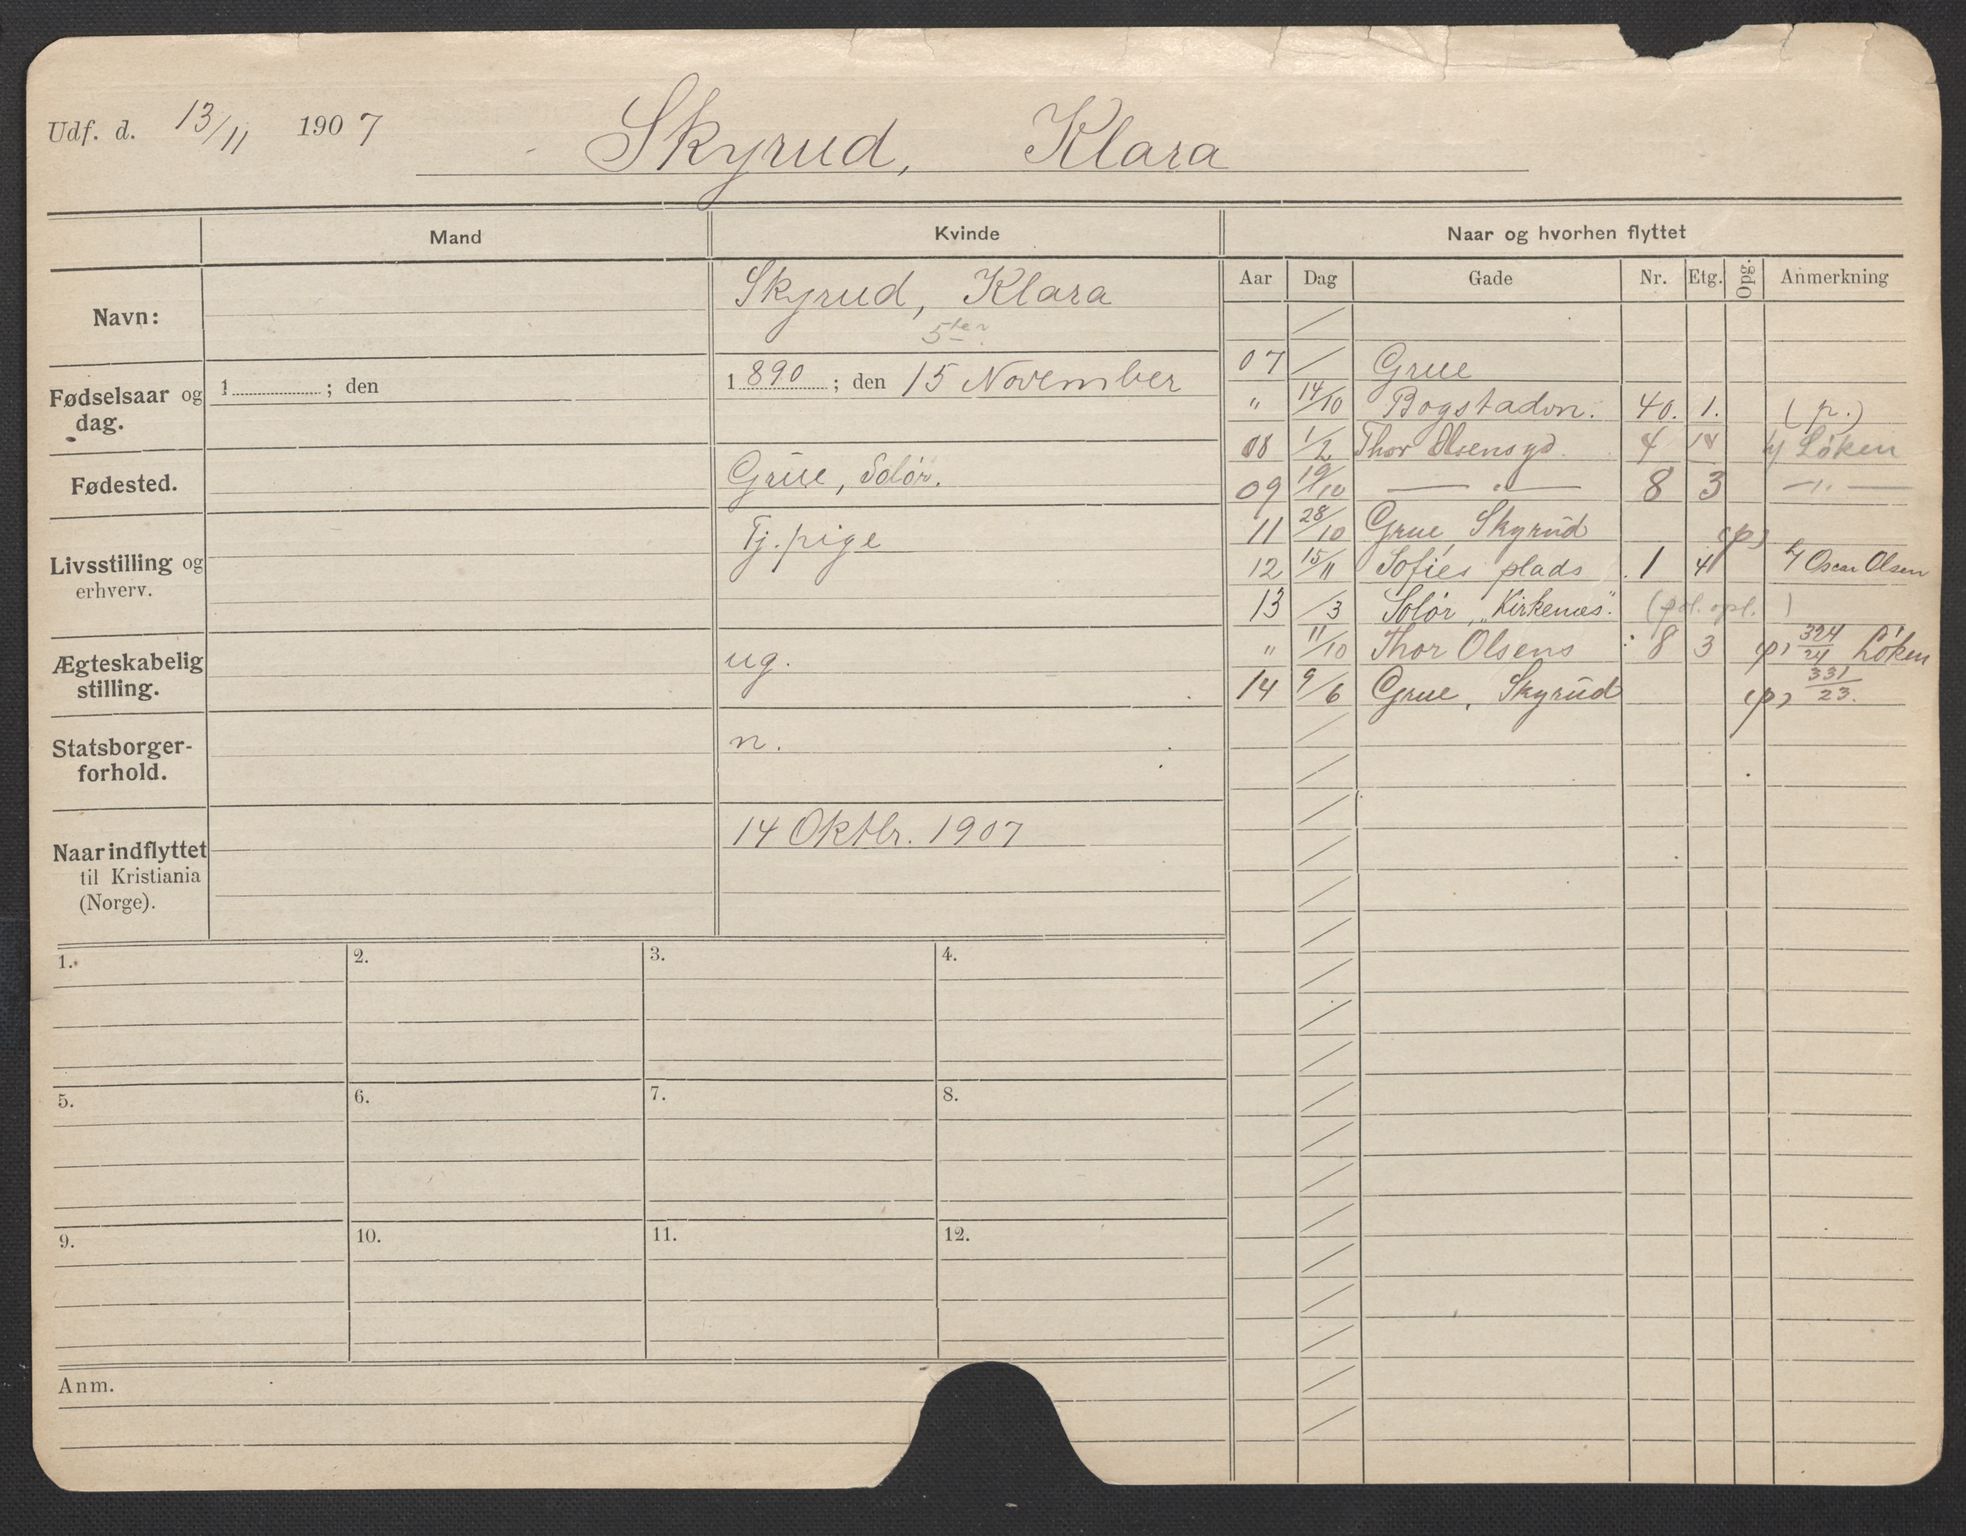 Udf. d. 13/11 1907 Skyrud, Klara
Mand Kvinde Naar og hvorhen flyttet
Aar Dag Gade Nr. Etg. Opg. Anmerkning
Navn: Skyrud, Klara
Fødselsaar og dag. 1 ; den 1890 ; den 15 November
Fødested. Grue, Solør.
Livsstilling og erhverv. Tj. pige
Ægteskabelig stilling. ug.
Statsborger-
forhold. n.
Naar indflyttet
til Kristiania
(Norge). 14 Oktbr. 1907
07 / Grue
" 14/10 Bogstadvn. 40. 1. (p.)
08 1/2 Thor Olsensgd. 4 Løken
09 19/10 — " — 8 3 — " —
11 28/10 Grue Skyrud (p)
12 15/11 Sofies plads 1 4 Oscar Olsen
13 /3 Solør, "Kirkenæs". (pol. opl. )
" 11/10 Thor Olsens 8 3 (p) 324/24 Løken
14 9/6 Grue, Skyrud (p) 331/23.
1. 2. 3. 4.
5. 6. 7. 8.
9. 10. 11. 12.
Anm.